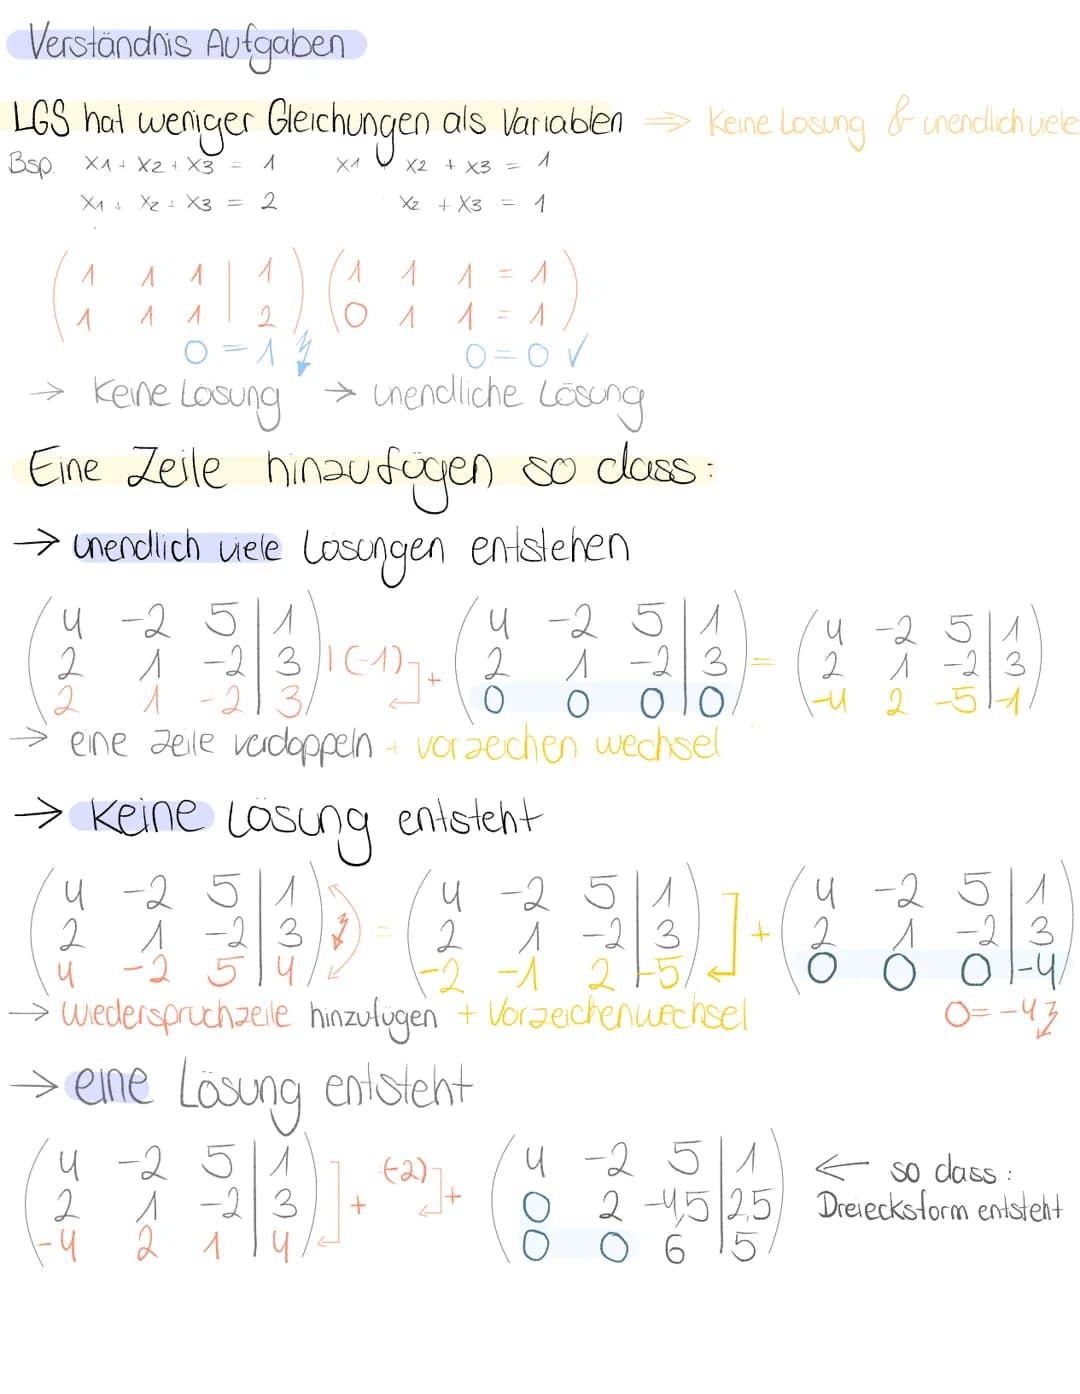 Verständnis Aufgaben
LGS hat weniger Gleichungen als Variablen ⇒ Keine Lösung & unendlich viele
Bsp. x1 + x2 + x3 = 1 x1 x2 + x3 = 1
x1 + x2 + x3 = 2 x2 + x3 = 1
( 1 1 1 | 1 ) ( 1 1 1 = 1 )
( 1 1 1 | 2 ) ( 0 1 1 = 1 )
0 = 1 ↯ 0 = 0 ✓
→ Keine Lösung → unendliche Lösung
Eine Zeile hinzufügen so dass:
→ unendlich viele Lösungen entstehen
( 4 -2 5 | 1 ) ( 4 -2 5 | 1 ) ( 4 -2 5 | 1 )
( 2 1 -2 | 3 ) | (-1) + ( 2 1 -2 | 3 ) = ( 2 1 -2 | 3 )
( 2 1 -2 | 3 ) ( 0 0 0 | 0 ) ( -4 2 -5 | -1 )
→ eine Zeile verdoppeln + vorzeichen wechsel
→ Keine Lösung entsteht
( 4 -2 5 | 1 ) ( 4 -2 5 | 1 ) ( 4 -2 5 | 1 )
( 2 1 -2 | 3 ) ↯ = ( 2 1 -2 | 3 ) ] + ( 2 1 -2 | 3 )
( 4 -2 5 | 4 ) ( -2 -1 2 | -5 ) ( 0 0 0 | -4 )
→ Wiederspruchzeile hinzufügen + Vorzeichenwechsel 0 = -4 ↯
→ eine Lösung entsteht
( 4 -2 5 | 1 ) (-2) ( 4 -2 5 | 1 ) ← so dass:
( 2 1 -2 | 3 ) ] + ] + ( 0 2 -4,5 | 2,5 ) Dreiecksform entsteht
( -4 2 1 | 4 ) ( 0 0 6 | 5 )